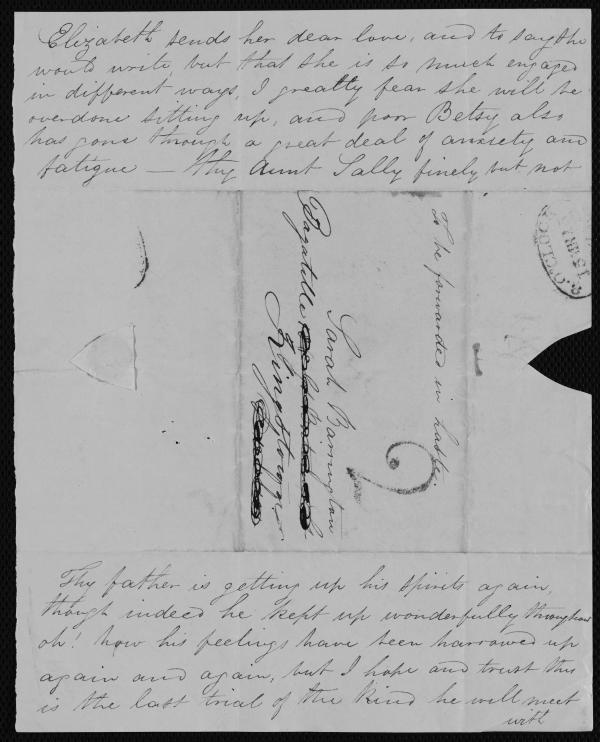 Elizabeth sends her dear love, and to say she
would write, but that she is so much engaged
in different ways, I greatly fear she will be
overdone sitting up, and poor Betsy also
has gone through a great deal of anxiety and
fatigue — thy Aunt Sally finely but not
To be forwarded in haste.
Sarah Barrington
Kingstown
2
O'CLOCK
Thy father is getting up his spirits again,
though indeed he kept up wonderfully throughout
oh! how his feelings have been harrowed up
again and again, but I hope and trust this
is the last trial of the kind he will meet
with